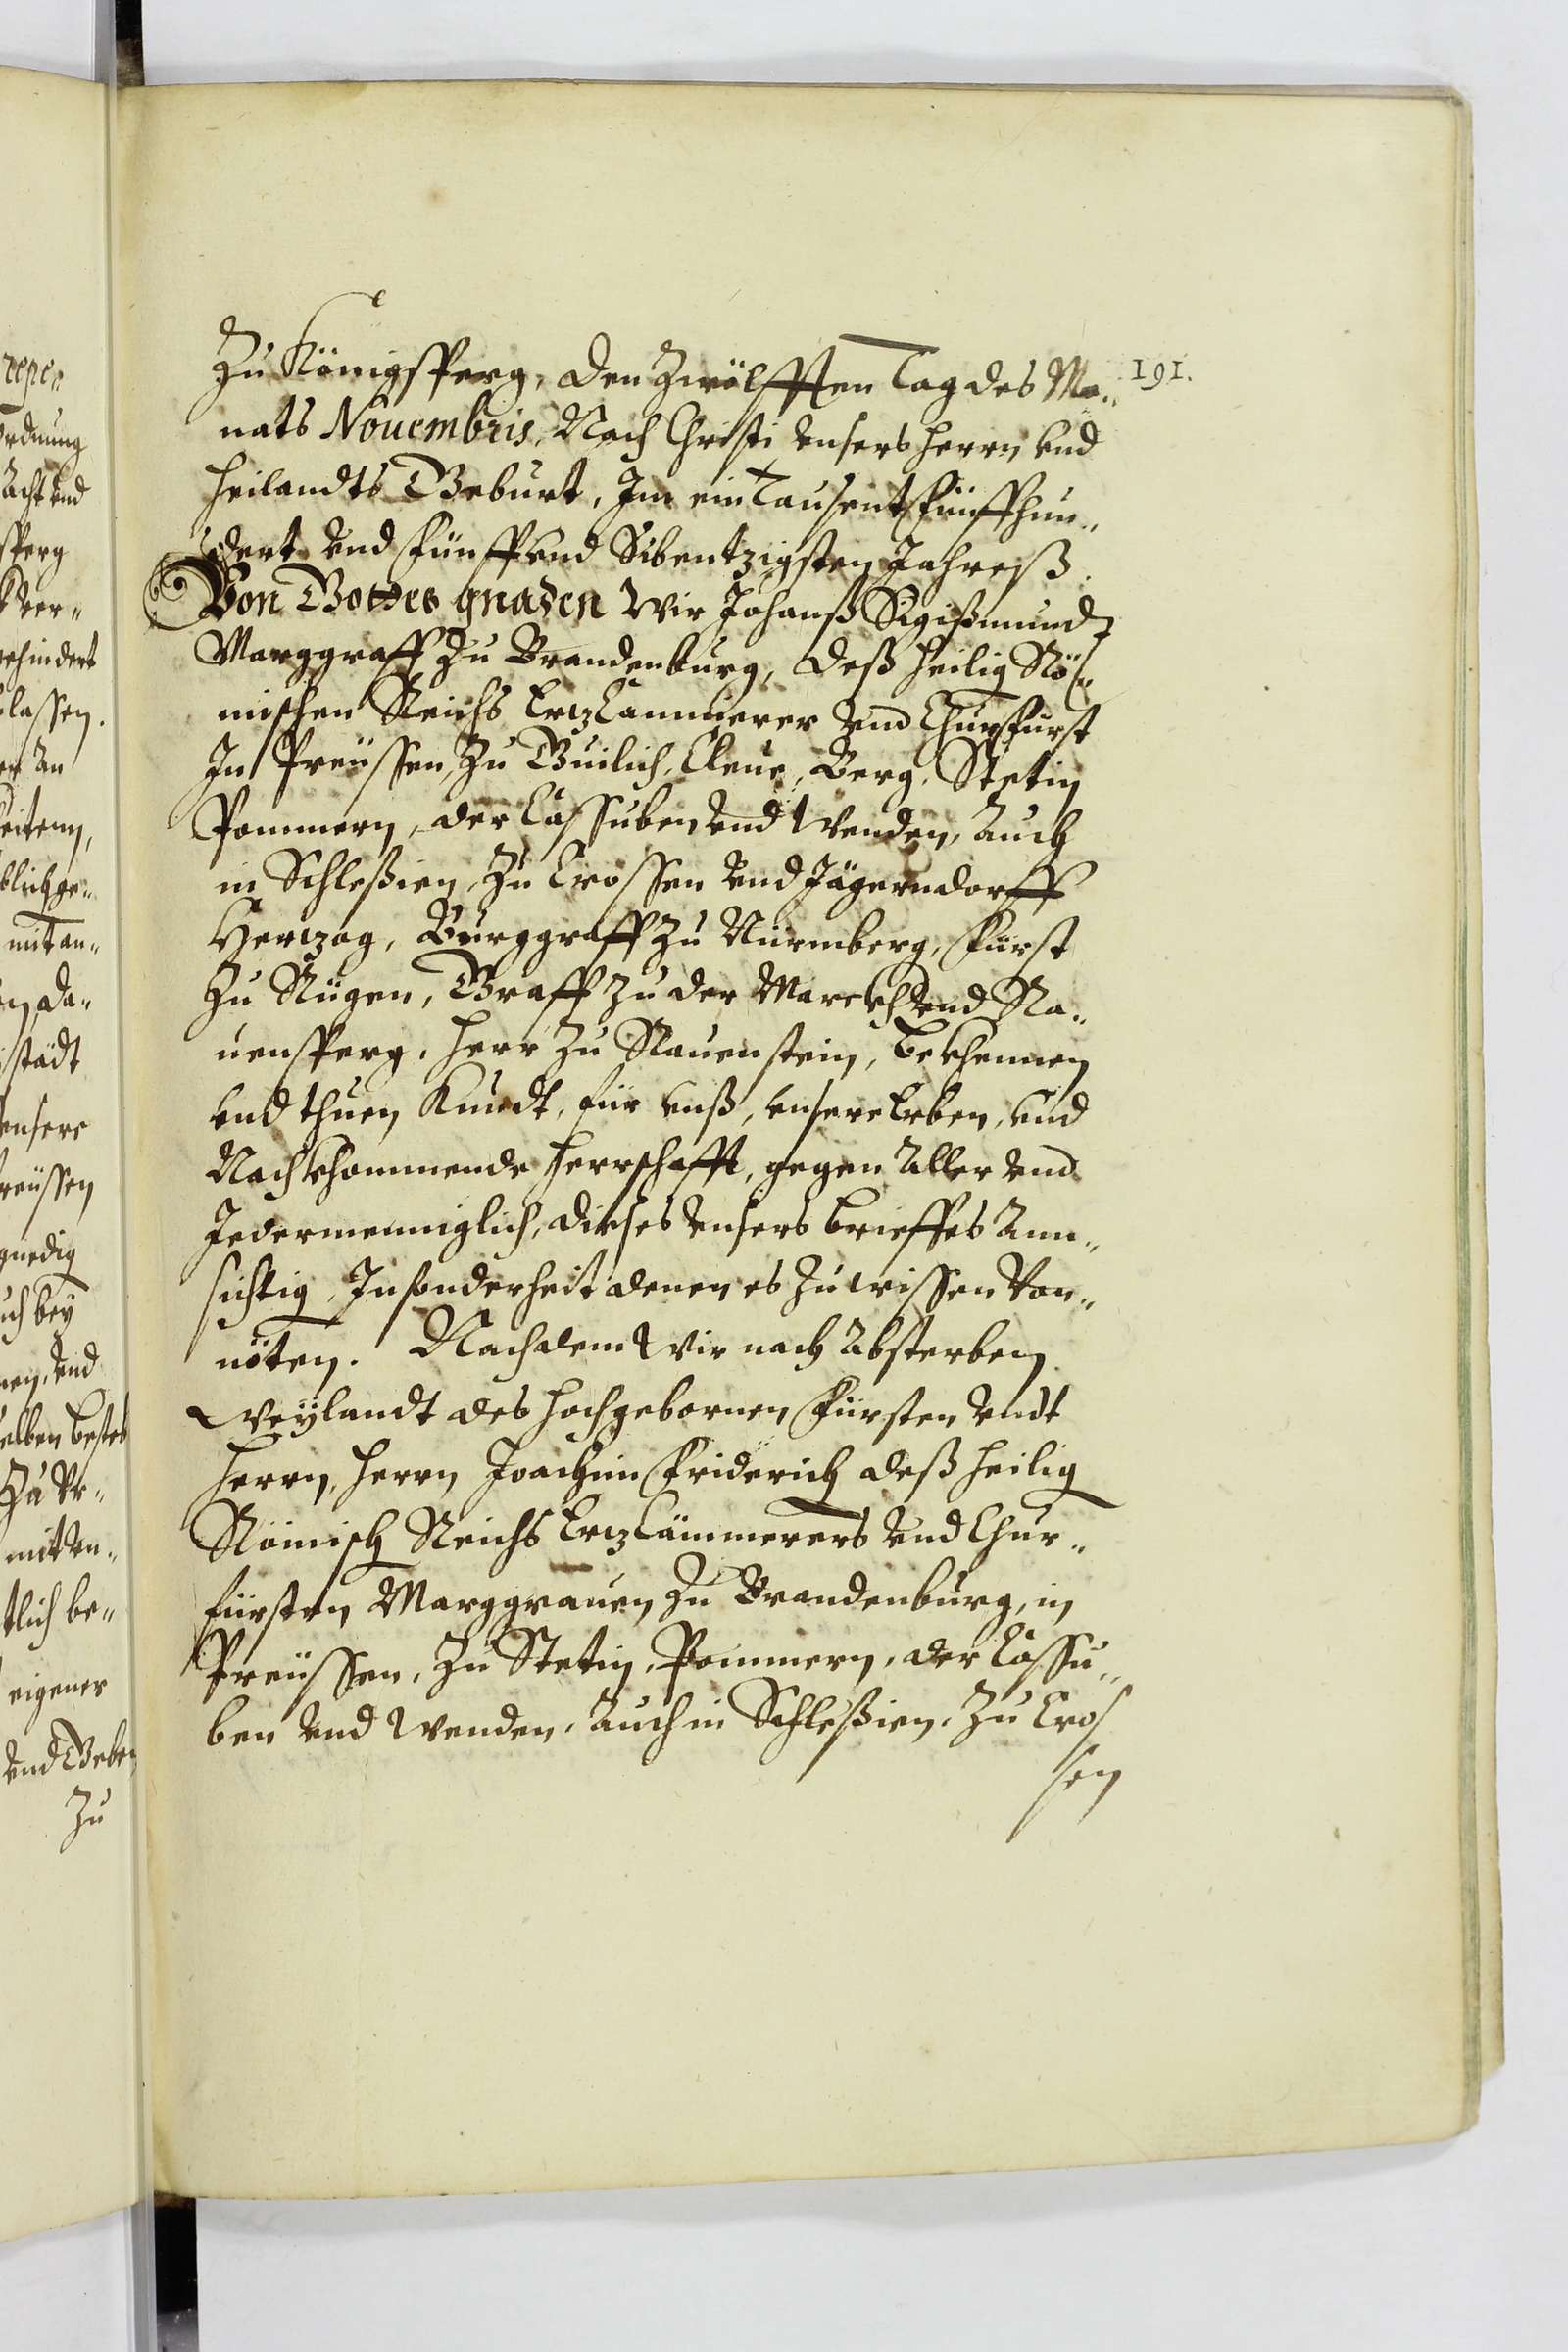 Zu Königsperg, den Zwölfften Tag des Mo„
nats Nouembris, Nach Christi vnsers herrn vnd
heilandts Geburt, Im ein Tausent fünffhun„
dert vnd fünff vnd Sibentzigsten Jahreß.
Von Gottes gnaden Wir Johanß Sigißmundt
Marggraff Zu Brandenburg, deß heilig Rö„
mischen Reichs Ertz Cammerer vnd Churfürst
In Preüssen, Zu Guilich, Cleue, Berg, Stetin
Pommern, der Cassuben vnd Wenden, Auch
in Schleßien, Zu Crossen vnd Jägerndorff
Hertzog, Burggraff Zu Nürmberg, Fürst
Zu Rügen, Graff Zu der Marckh vnd Ra„
uensperg, herr Zu Rauenstein, bekhennen
vnd thuen Kundt, für vnß, vnsere Erben, vnd
Nachkhommende herrschafft, gegen Aller vnd
Jedermenniglich, dieses vnsers brieffes Ann„
sichtig, Insonderheit denen es Zu wissen Von„
nöten. Nachdem Wir nach Absterben
Weÿlandt des hochgebornen Fürsten vndt
herrn, herrn Joachim Friderich deß heilig
Römisch Reichs Ertz Cämmerers vnd Chur„
fürsten Marggrauen Zu Brandenburg, in
Preüssen, Zu Stetin, Pommern, der Cassu„
ben vnd Wenden, Auch in Schleßien, Zu Cros
sen
191.
ordnung
Acht vnd
sperg
Ver„
rhindert
lassen.
er An
eitern,
blich ge„
mit an„
n, da„
städt
vnsere
reüssen
gnedig
uch bey
nen, vnd
elben bestes
Zu Ver„
mit vn„
tlich be„
eigener
vnd Geben
Zu